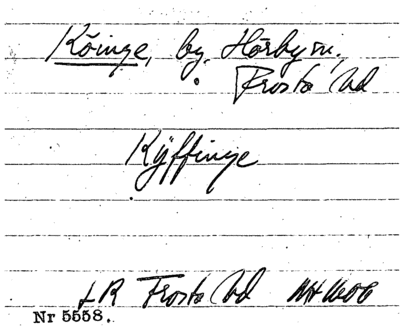 Köinge, by, Hörby sn,
Frosta hd
Kÿffinge
LR Frosta hd MH 1606
Nr 5558.